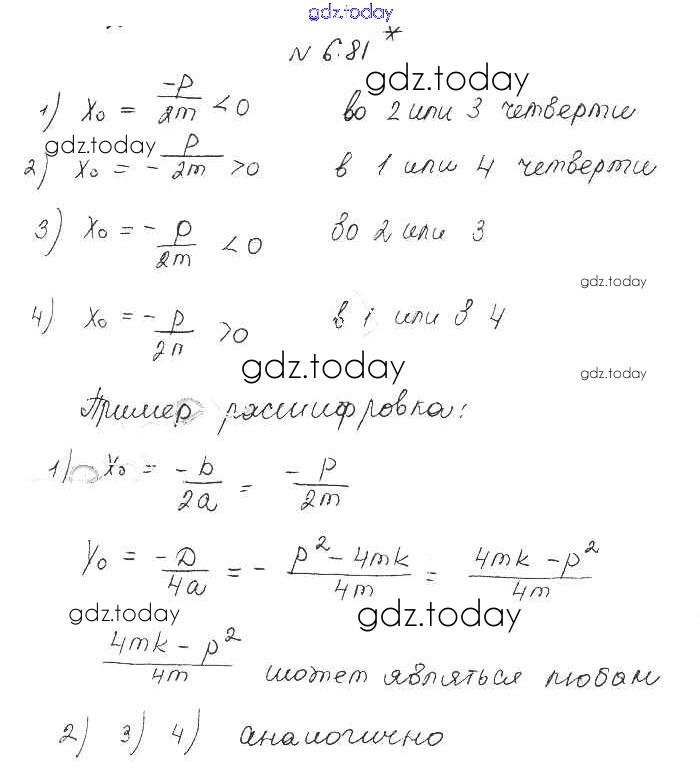 gdz.today
N 6.81 *
gdz.today
1) x₀ = -p/2m < 0 во 2 или 3 четверти
gdz.today
2) x₀ = - p/2m > 0 в 1 или 4 четверти
3) x₀ = - p/2m < 0 во 2 или 3
gdz.today
4) x₀ = - p/2n > 0 в 1 или в 4
gdz.today gdz.today
Пример расшифровка:
1) x₀ = -b/2a = -p/2m
y₀ = -D/4a = - p² - 4mk/4m = 4mk - p²/4m
gdz.today gdz.today
4mk - p²/4m может являться любым
2) 3) 4) аналогично